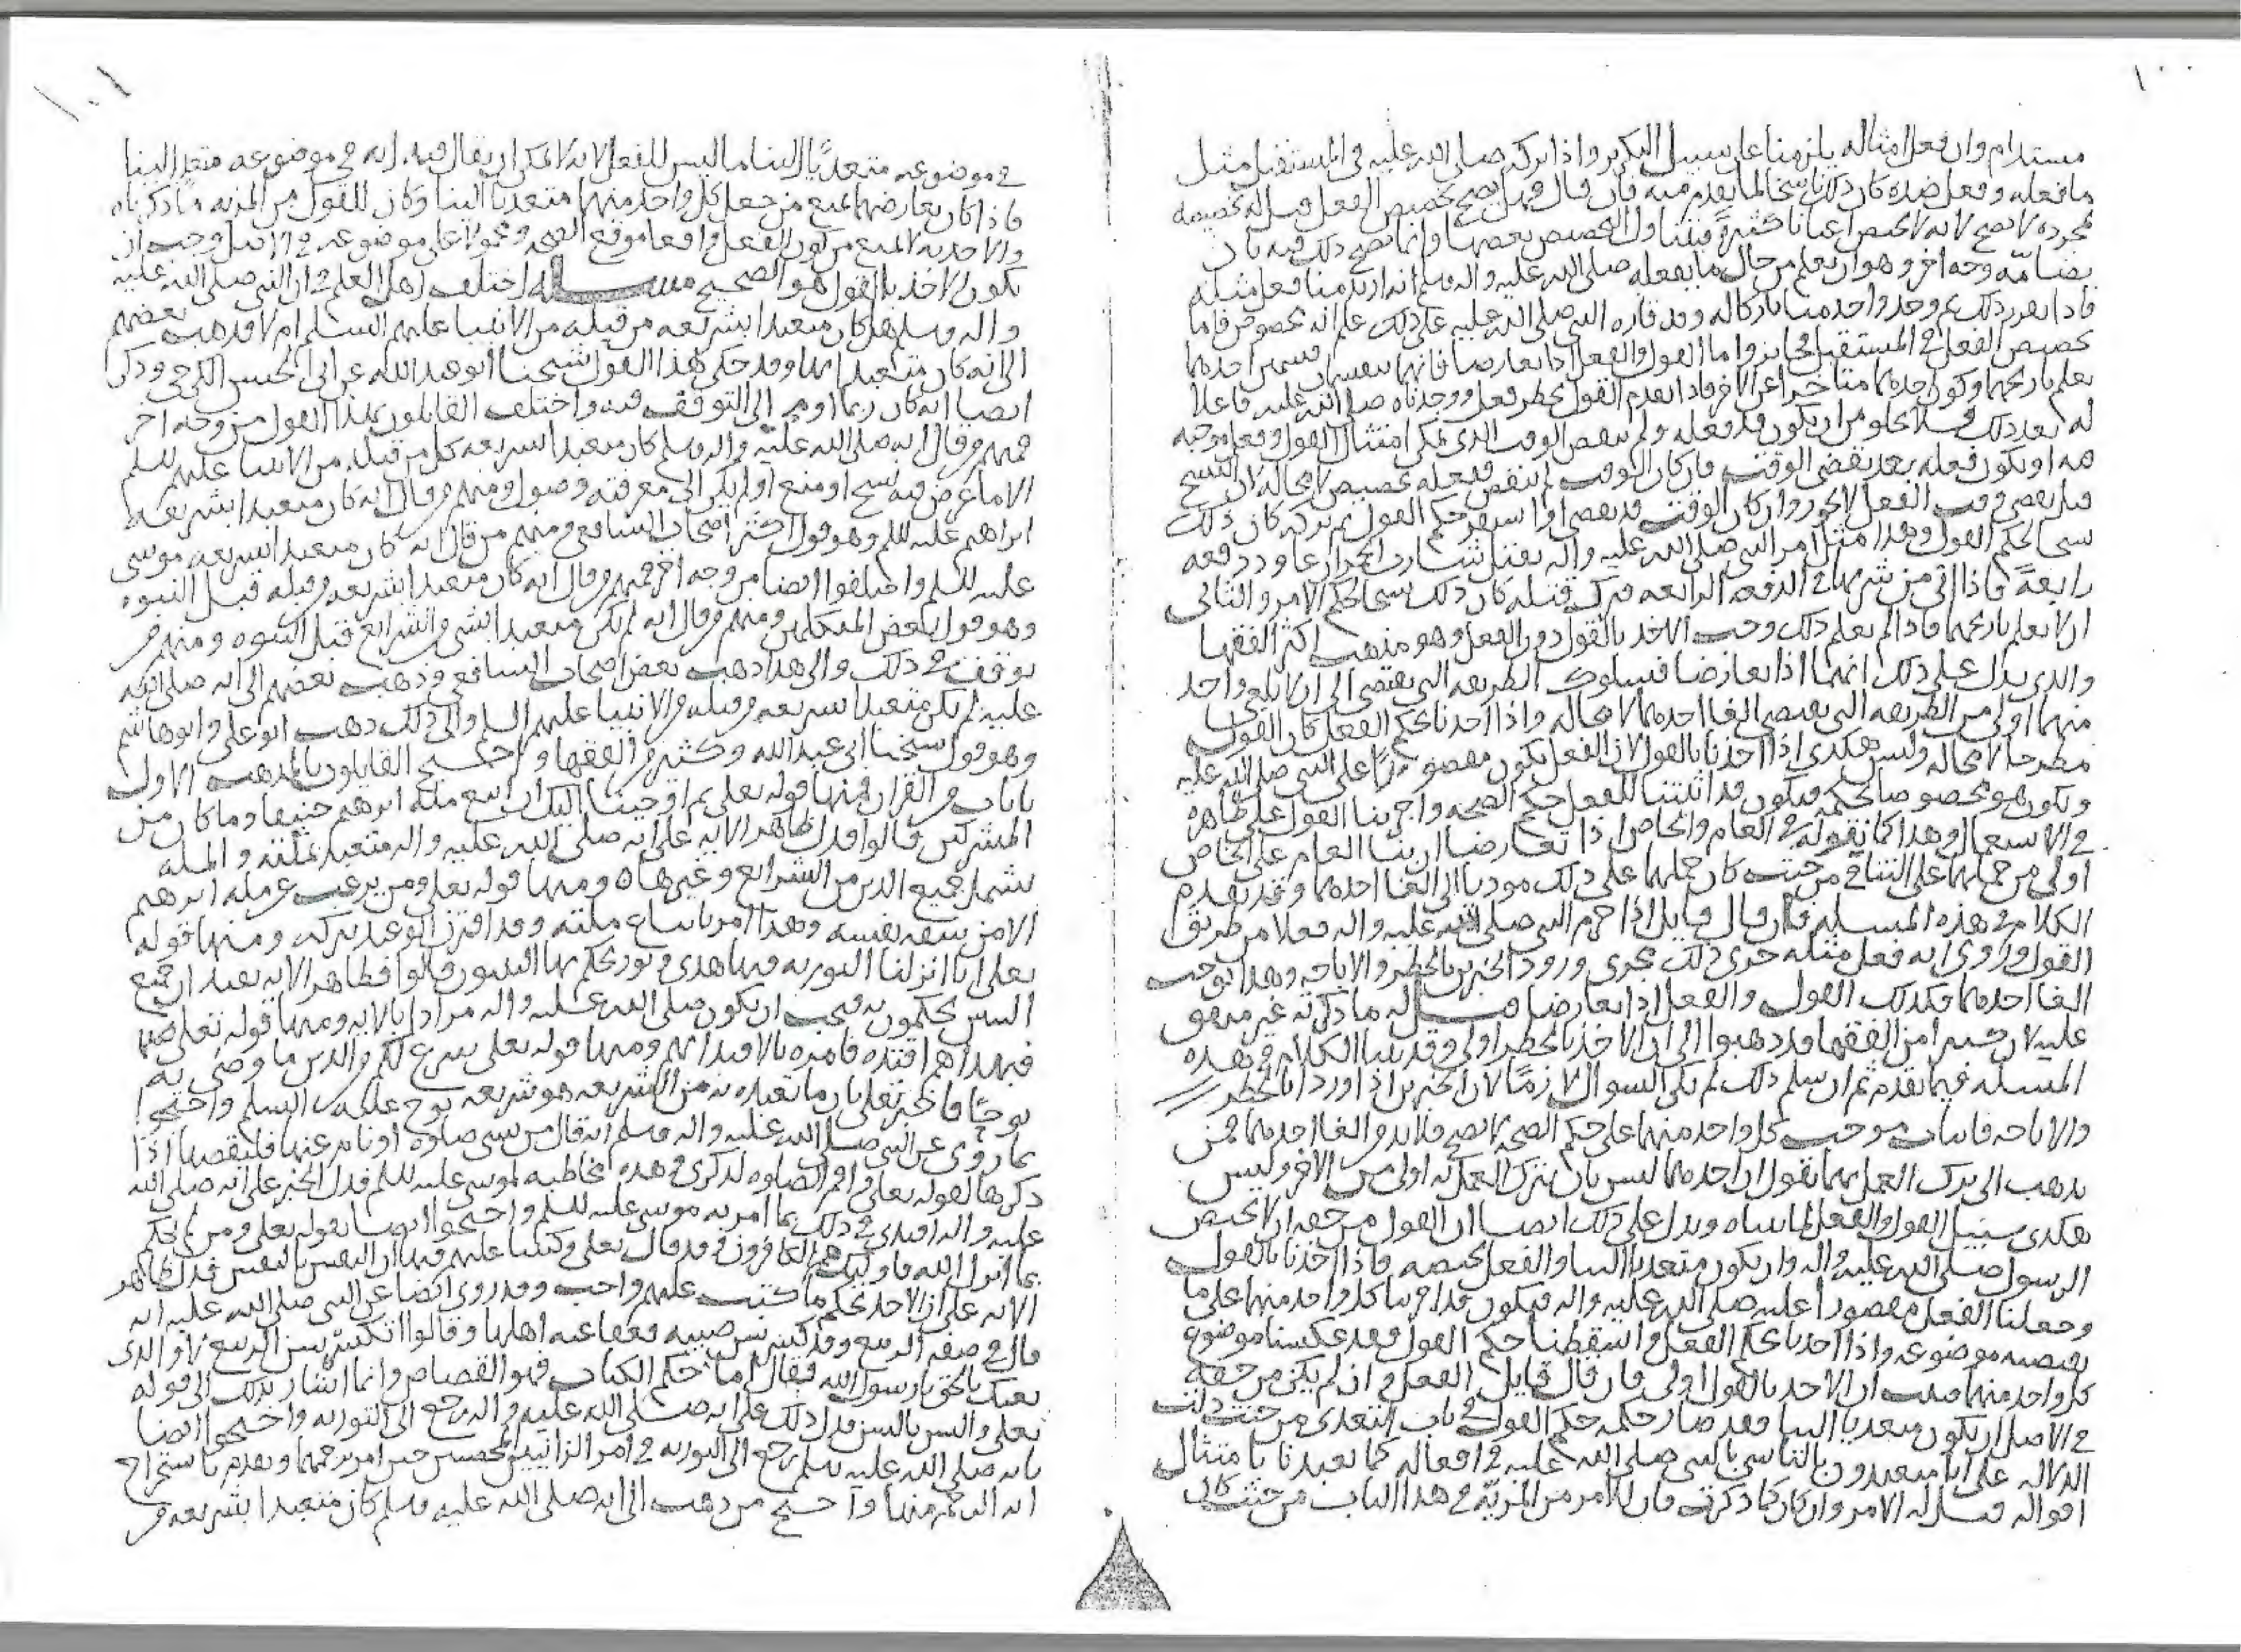 ١٠٠
مستدام وان فعل امثاله يلزمنا على سبيل التكرير واذا تركه صلى الله عليه في المستقبل مثل
ما فعله وفعل ضده كان ذلك ناسخا لما تقدم منه فان قال فهل يصح تخصيص الفعل قيل له تخصيصه
بمجرده لا يصح لانه لا يختص اعيانا كثيرة فيتناول التخصيص بعضها وانما يصح ذلك فيه بان
بضامه وجه اخر وهو ان يعلم من حال ما يفعله صلى الله عليه واله وسلم انه اريد منا فعل مثله
فاذا تقرر ذلك ثم وجد واحد منا تاركا له وقد قاره النبي صلى الله عليه على ذلك علم انه مخصوص فاما
تخصيص الفعل في المستقبل فجايز واما القول والفعل اذا تعارضا فانهما ينقسمان قسمين احدهما
يعلم تاريخهما وكون احدهما متاخرا عن الاخر فاذا تقدم القول بحظر فعل ووجدناه صلى الله عليه فاعلا
له بعد ذلك فلا يخلو من ان يكون قد فعله ولم ينقض الوقت الذي يمكن امتثال القول وفعل موجبه
فيه او يكون فعله بعد تقضي الوقت فان كان الوقت لم ينقض ففعله تخصيص لا محالة لان النسخ
قبل تقضي وقت الفعل لا يجوز وان كان الوقت قد تقضى او استقر حكم القول ثم تركه كان ذلك
نسخا لحكم القول وهذا مثل امر النبي صلى الله عليه واله بقتل شارب الخمر ان عاود دفعه
رابعة فاذا اتي من شربها في الدفعه الرابعه فترك قتله كان ذلك نسخا لحكم الامر والثاني
ان لا يعلم تاريخهما فاذا لم يعلم ذلك وجب الاخذ بالقول دون الفعل وهو مذهب اكثر الفقها
والذي يدل على ذلك انهما اذا تعارضا فسلوك الطريقه التي تقتضي الى ان لا يلغى واحد
منهما اولى من الطريقه التي تقتضي الغا احدهما لا محاله واذا اخذنا بحكم الفعل كان القول
مطرحا لا محاله وليس هكذى اذا اخذنا بالقول لان الفعل يكون مقصورا على النبي صلى الله عليه
ويكون هو مخصوصا بحكمه فيكون قد اثبتنا للفعل حكم الصحه واجرينا القول على ظاهره
في الاستعمال وهذا كما نقوله في العام والخاص اذا تعارضا ان بنا العام على الخاص
اولى من حملهما على التنافي من حيث كان حملهما على ذلك موديا الى الغا احدهما وقد تقدم
الكلام في هذه المسئله فان قال قايل اذا حرم النبي صلى الله عليه واله فعلا من طريق
القول وروي انه فعل مثله جرى ذلك مجرى ورود الخبرين بالحظر والاباحه وهذا يوجب
الغا احدهما فكذلك القول والفعل اذا تعارضا قيل له ما ذكرته غير متفق
عليه لان كثيرا من الفقها قد ذهبوا الى ان الاخذ بالحظر اولى وقد بينا الكلام في هذه
المسئله فيما تقدم ثم ان سلم ذلك لم يكن السوال لازما لان الخبرين اذا وردا بالحظر
والاباحه فاثبات موجب كل واحد منهما على حكم الصحه لا يصح فلا بد من الغا احدهما فمن
يذهب الى ترك العمل بهما نقول ان احدهما ليس بان يترك العمل به اولى من الاخر وليس
هكذى سبيل القول والفعل لما بيناه ويدل على ذلك ايضا ان القول من حقه ان لا يختص
الرسول صلى الله عليه واله وان يكون متعديا الينا والفعل يختصه فاذا اخذنا بالقول
وجعلنا الفعل مقصورا عليه صلى الله عليه واله فيكون قد اجرينا كل واحد منهما على ما
يقتضيه موضوعه واذا اخذنا بحكم الفعل واسقطنا حكم القول فقد عكسنا موضوع
كل واحد منهما فثبت ان الاخذ بالقول اولى فان قال قايل الفعل وان لم يكن من حقه
في الاصل ان يكون متعديا الينا فقد صار حكمه حكم القول في باب التعدي من حيث دلت
الدلاله على انا متعبدون بالتاسي بالنبي صلى الله عليه في افعاله كما تعبدنا بامتثال
اقواله قيل له الامر وان كان كما ذكرت فان للامر من المزيه في هذا الباب من حيث كان
١٠١
في موضوعه متعديا الينا ما ليس للفعل لانه لا يمكن ان يقال فيه انه في موضوعه متعد الينا
فاذا كان تعارضهما يمنع من جعل كل واحد منهما متعديا الينا وكان للقول من المزيه ما ذكرناه
والاخذ به لا يمنع من كون الفعل واقعا موقع الصحه ومحمولا على موضوعه في الاصل وجب ان
يكون الاخذ بالقول هو الصحيح مسئله اختلف اهل العلم في ان النبي صلى الله عليه
واله وسلم هل كان متعبدا بشريعه من قبله من الانبيا عليهم السلم ام لا فذهب بعضهم
الى انه كان متعبدا بها وقد حكى هذا القول شيخنا ابو عبد الله عن ابي الحسن الكرخي وذكر
ايضا انه كان ربما اومى الى التوقف فيه واختلف القايلون بهذا القول من وجه اخر
فمنهم من قال انه صلى الله عليه واله وسلم كان متعبدا بشريعه كل من قبله من الانبيا عليهم السلم
الا ما عرض فيه نسخ او منع او لم يكن الى معرفته وصول ومنهم من قال انه كان متعبدا بشريعه
ابراهيم عليه السلم وهو قول اكثر اصحاب الشافعي ومنهم من قال انه كان متعبدا بشريعه موسى
عليه السلم واختلفوا ايضا من وجه اخر فمنهم من قال انه كان متعبدا بشريعه من قبله قبل النبوه
وهو قول بعض المتكلمين ومنهم من قال انه لم يكن متعبدا بشي من الشرايع قبل النبوه ومنهم من
توقف في ذلك والى هذا ذهب بعض اصحاب الشافعي وذهب بعضهم الى انه صلى الله
عليه لم يكن متعبدا بشريعه من قبله من الانبيا عليهم السلم والى ذلك ذهب ابو علي وابو هاشم
وهو قول شيخنا ابي عبد الله وكثير من الفقها واحتج القايلون بالمذهب الاول
بايات من القران منها قوله تعلى ثم اوحينا اليك ان اتبع مله ابرهيم حنيفا وما كان من
المشركين قالوا فدل ظاهر الايه على انه صلى الله عليه واله متعبد بملته والمله
تشمل جميع الدين من الشرايع وغيرها ومنها قوله تعلى ومن يرغب عن مله ابرهيم
الا من سفه نفسه وهذا امر باتباع ملته وقد اقترن الوعيد بتركه ومنها قوله
تعلى انا انزلنا التوريه فيها هدى ونور يحكم بها النبيون قالوا فظاهر الايه يفيد ان جميع
النبيين يحكمون به فيجب ان يكون صلى الله عليه واله مرادا بالايه ومنها قوله تعلى
فبهداهم اقتده فامره بالاقتدا بهم ومنها قوله تعلى شرع لكم من الدين ما وصى به
نوحا فاخبر تعلى بان ما تعبده به من الشريعه هو شريعه نوح عليه السلم واحتجوا
بما روي عن النبي صلى الله عليه واله وسلم انه قال من نسي صلوه او نام عنها فليقضها اذا
ذكرها لقوله تعلى واقم الصلوه لذكري وهذه مخاطبه لموسى عليه السلم فدل الخبر على انه صلى الله
عليه واله اقتدى في ذلك بما امر به موسى عليه السلم واحتجوا ايضا بقوله تعلى ومن لم يحكم
بما انزل الله فاوليك هم الكافرون وقد قال تعلى وكتبنا عليهم فيها ان النفس بالنفس فدل ظاهر
الايه على ان الاخذ بحكم ما كتب عليهم واجب وقد روي ايضا عن النبي صلى الله عليه انه
قال في قصه الربيع وقد كسرت سن صبيه فعفا عنه اهلها وقالوا اتكسر سن الربيع لا والذي
بعثك بالحق يا رسول الله فقال اما حكم الكتاب فهو القصاص وانما اشار بذلك الى قوله
تعلى والسن بالسن فدل ذلك على انه صلى الله عليه واله رجع الى التوريه واحتجوا ايضا
بانه صلى الله عليه وسلم رجع الى التوريه في امر الزانيين المحصنين حين امر برجمهما وتقدم باستخراج
ايه الرجم منها واحتج من ذهب الى انه صلى الله عليه وسلم كان متعبدا بشريعه من